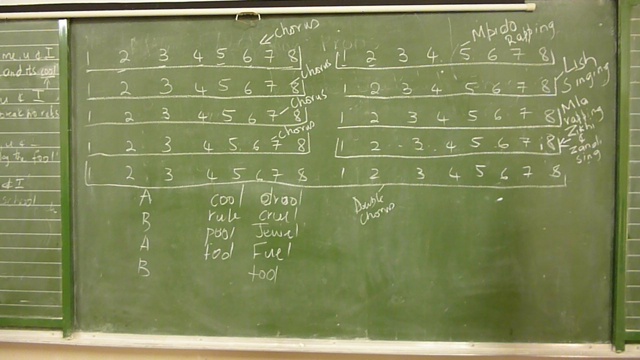 me, u & I
and its cool
u & I
u -
to the fool
& I
school
Chorus
1 2 3 4 5 6 7 8
Chorus
1 2 3 4 5 6 7 8
Chorus
1 2 3 4 5 6 7 8
Chorus
1 2 3 4 5 6 7 8
1 2 3 4 5 6 7 8
Mpido Rapping
1 2 3 4 5 6 7 8
Lush Singing
1 2 3 4 5 6 7 8
Mla rapping
1 2 3 4 5 6 7 8
Zikhi & Zandi sing
1 2 3 4 5 6 7 8
1 2 3 4 5 6 7 8
Double Chorus
A cool drool
B rule cruel
A pool Jewel
B fool Fuel
tool